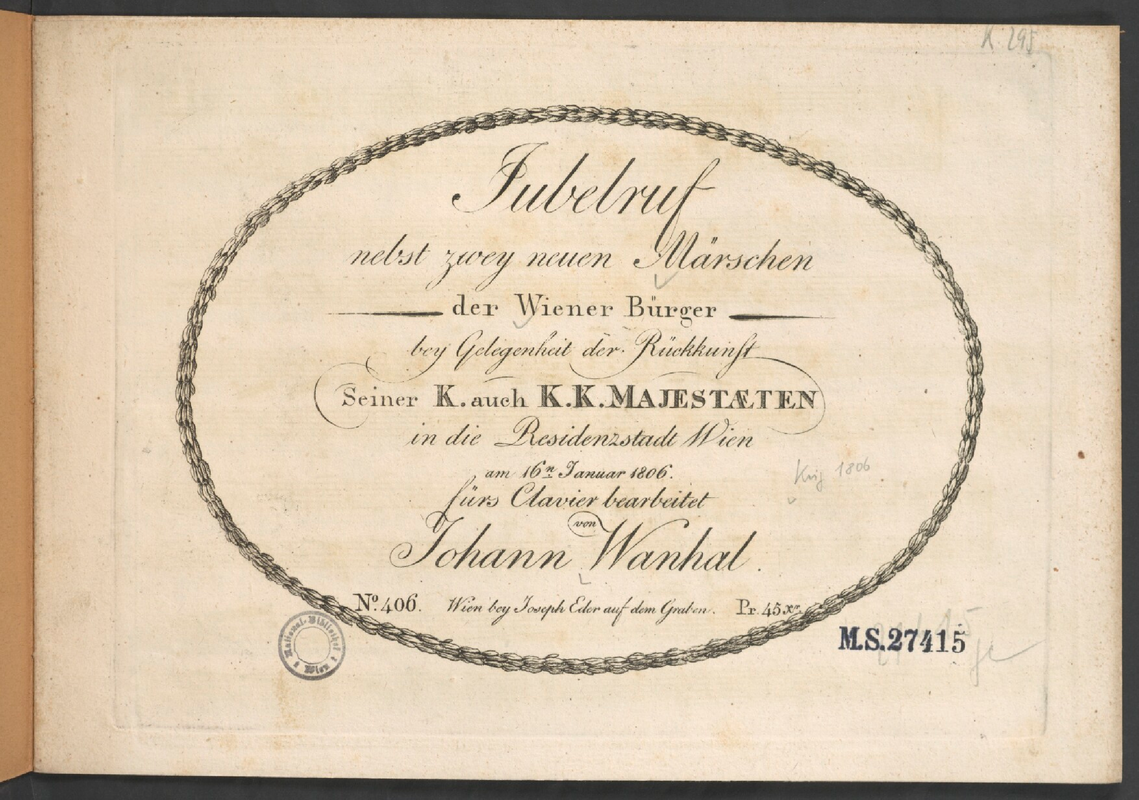 K. 295
Jubelruf
nebst zwey neuen Märschen
der Wiener Bürger
bey Gelegenheit der Rückkunft
Seiner K. auch K.K. MAJESTÆTEN
in die Residenzstadt Wien
am 16n Januar 1806.
fürs Clavier bearbeitet
von
Johann Wanhal.
No. 406. Wien bey Joseph Eder auf dem Graben. Pr. 45 xr.
1806
National-Bibliothek Wien
M.S. 27415